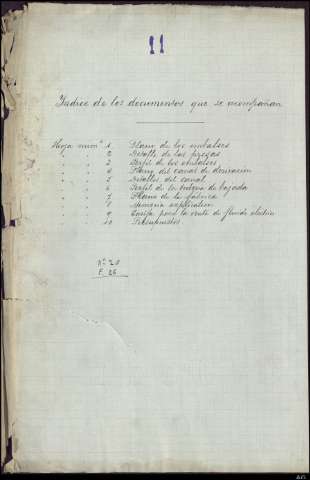 11
Indice de los documentos que se acompañan
Hoja núm.º 1 Plano de los embalses
" " 2 Detalle de las presas
" " 3 Perfil de los embalses
" " 4 Plano del canal de derivación
" " 5 Detalles del canal
" " 6 Perfil de la tubería de bajada
" " 7 Plano de la fabrica
" " 8 Memoria explicativa
" " 9 Tarifa para la venta de fluido eléctrico
" " 10 Presupuestos
Nº 20
F. 26